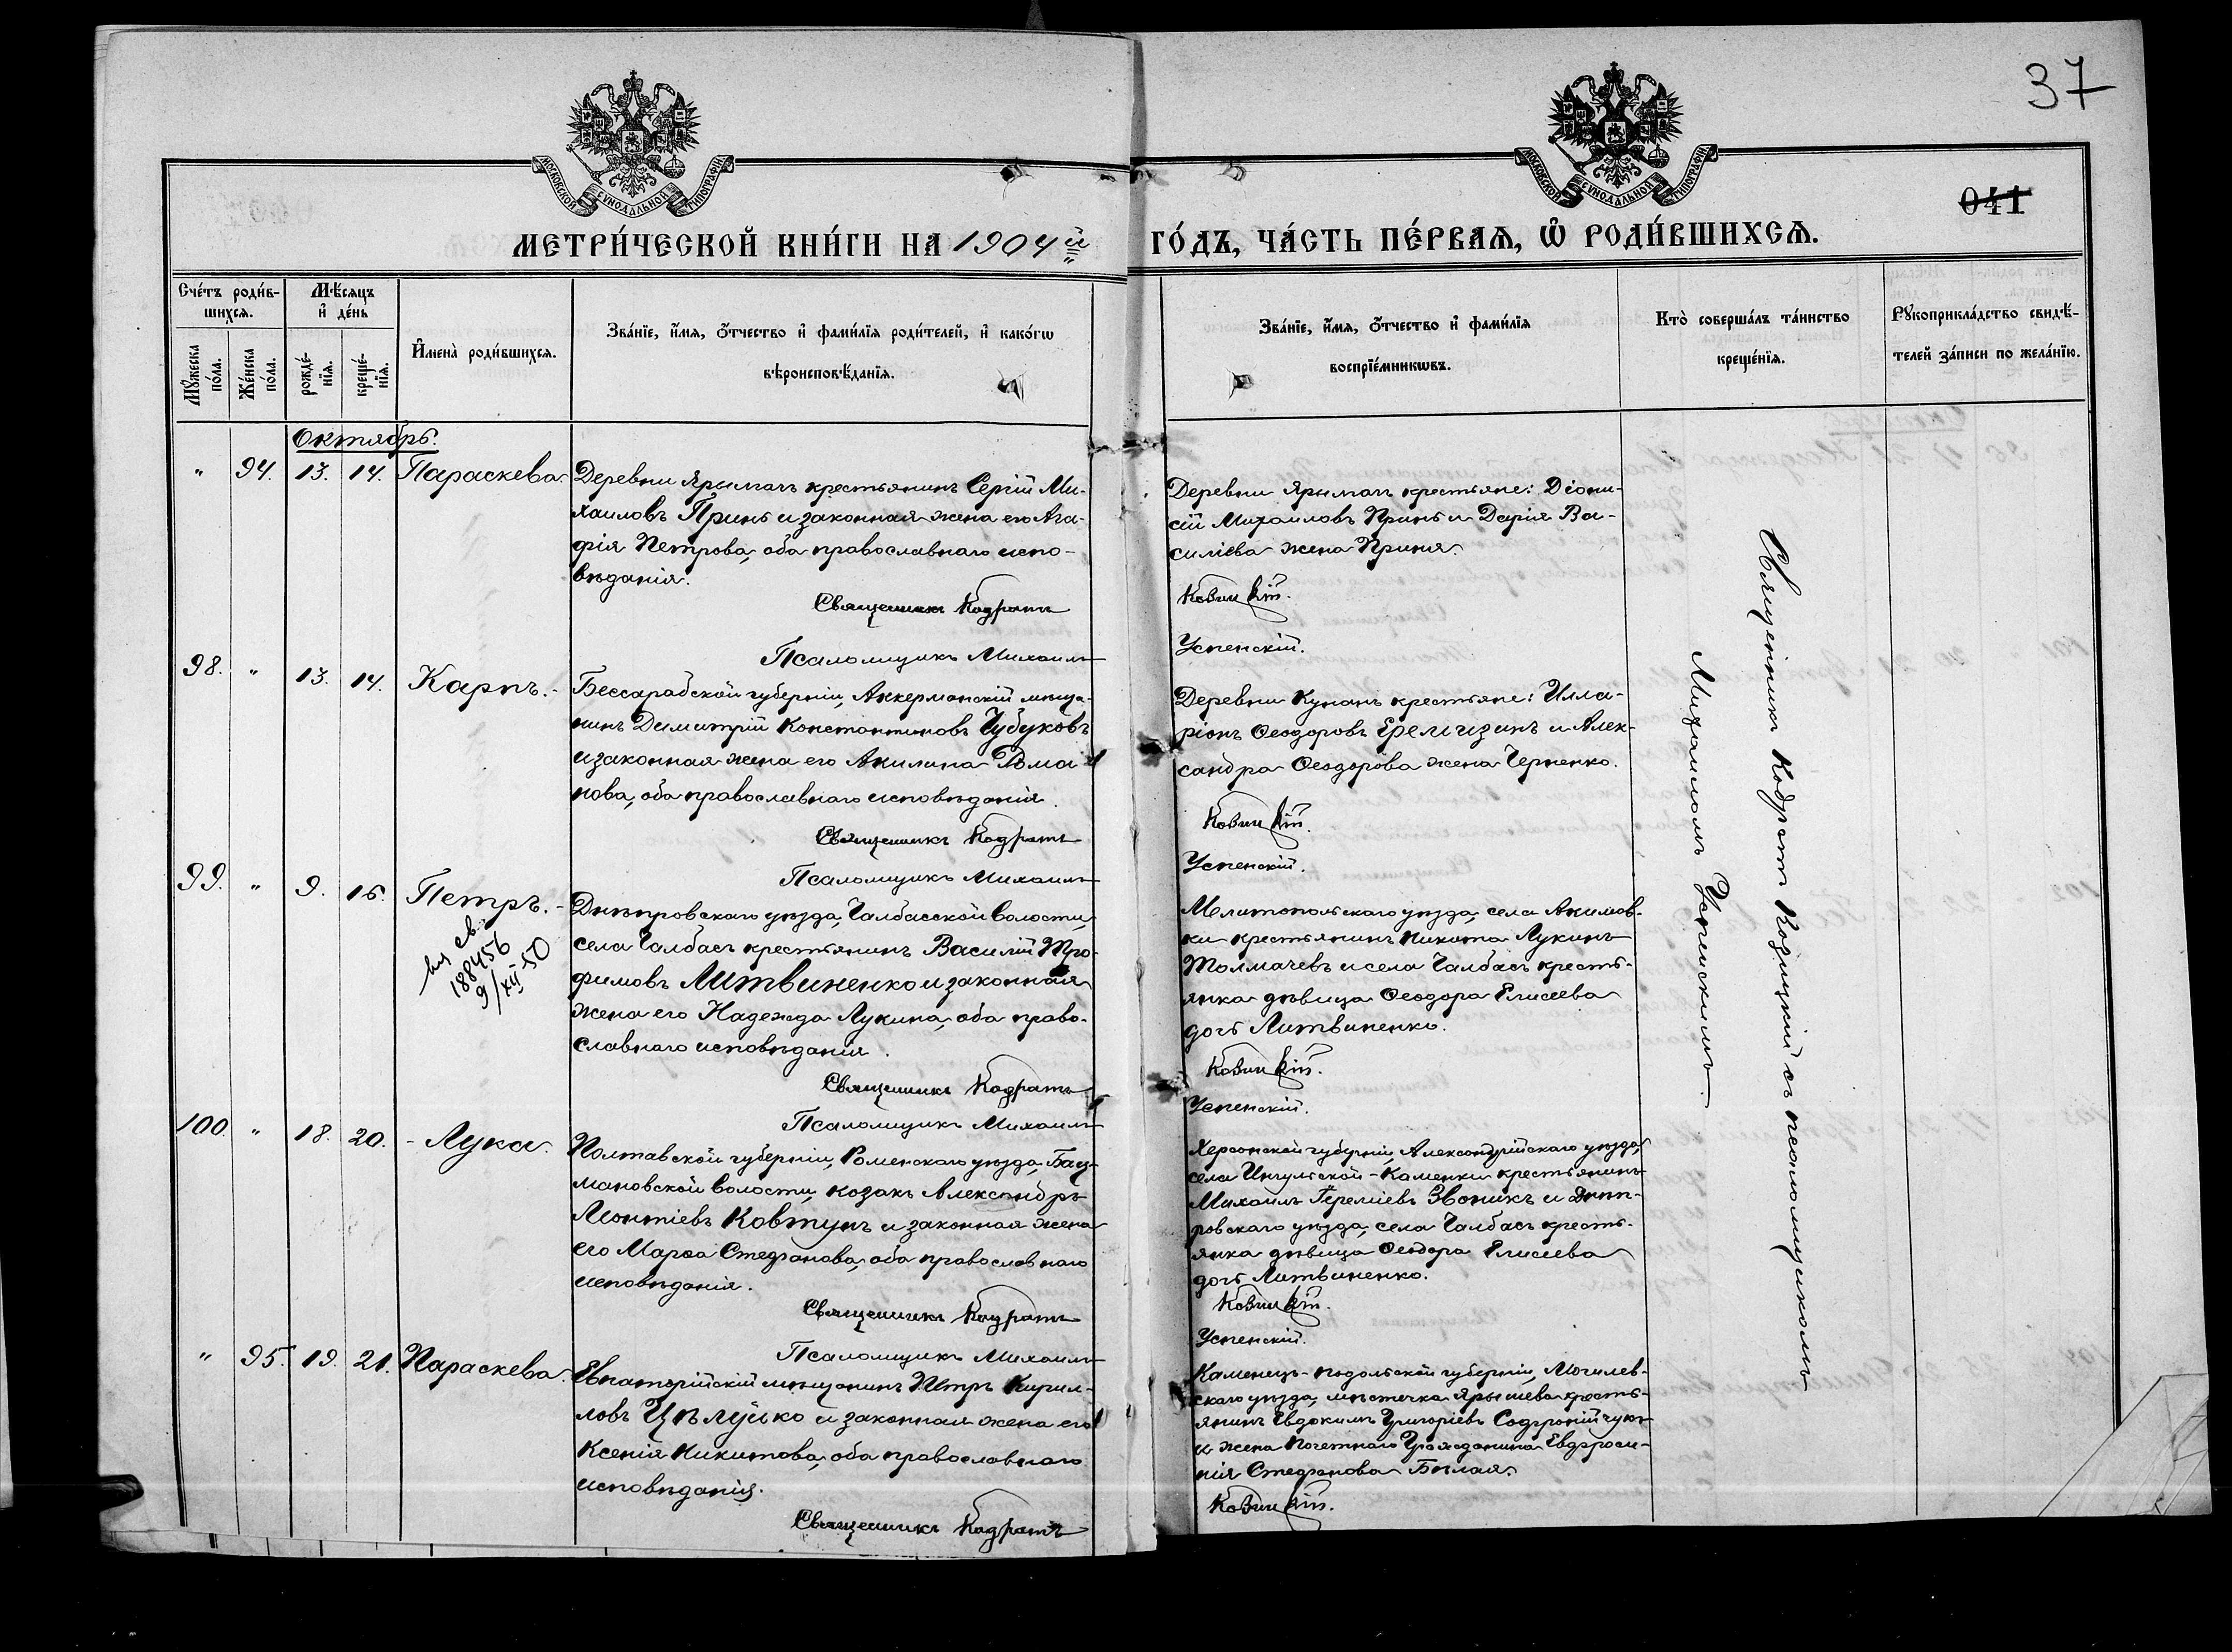 37
041
МОСКОВСКОЙ СѴНОДАЛЬНОЙ ТИПОГРАФІИ
МОСКОВСКОЙ СѴНОДАЛЬНОЙ ТИПОГРАФІИ
МЕТРИ́ЧЕСКОЙ КНИ́ГИ НА 1904й ГО́ДЪ, ЧА́СТЬ ПЕ́РВАѦ, Ѡ҆ РОДИ́ВШИХСѦ.
Сче́тъ роди́в-
шихсѧ.
Мꙋ́жеска
по́ла.
Же́нска
по́ла.
Мѣ́сѧцъ
и҆ де́нь
рожде́-
нїѧ.
креще́-
нїѧ.
И҆мена̀ роди́вшихсѧ.
Зва́нїе, и҆́мѧ, о҆́тчество и҆ фами́лїѧ роди́телей, и҆ како́гѡ
вѣроисповѣ́данїѧ.
Зва́нїе, и҆́мѧ, о҆́тчество и҆ фами́лїѧ
воспрїе́мникѡвъ.
Кто̀ соверша́лъ та́инство
креще́нїѧ.
Рꙋкоприкла́дство свидѣ́-
телей за́писи по жела́нїю.
Октябрь.
" 94. 13. 14. Параскева.
Деревни Ярымачъ крестьянинъ Сергій Ми-
хаиловъ Принь и законная жена его Ага-
фія Петрова, оба православнаго испо-
вѣданія.
Священникъ Кодратъ
Псаломщикъ Михаилъ
Деревни Ярымачъ крестьяне: Діони-
сій Михаиловъ Принь и Дарія Ва-
силіева жена Приня.
Козицкій.
Успенскій.
98. " 13. 14. Карпъ.
Бессарабской губерніи, Аккерманскій мѣща-
нинъ Димитрій Константиновъ Чубуковъ
и законная жена его Акилина Рома-
нова, оба православнаго исповѣданія.
Священникъ Кодратъ
Псаломщикъ Михаилъ
Деревни Кунанъ крестьяне: Илла-
ріонъ Ѳеодоровъ Еремизинъ и Алек-
сандра Ѳеодорова жена Черненко.
Козицкій.
Успенскій.
99. " 9. 16. Петръ.
св.
188456
9/XII 50
Днѣпровскаго уѣзда, Чалбасской волости,
села Чалбасъ крестьянинъ Василій Тро-
фимовъ Литвиненко и законная
жена его Надежда Лукина, оба право-
славнаго исповѣданія.
Священникъ Кодратъ
Псаломщикъ Михаилъ
Мелитопольскаго уѣзда, села Акимов-
ки крестьянинъ Никита Лукинъ
Толмачевъ и села Чалбасъ кресть-
янка дѣвица Ѳеодора Елисеева
дочь Литвиненко.
Козицкій.
Успенскій.
100. " 18. 20. Лука.
Полтавской губерніи, Роменскаго уѣзда, Бац-
мановской волости, козакъ Александръ
Монтіевъ Ковтунъ и законная жена
его Марѳа Стефанова, оба православнаго
исповѣданія.
Священникъ Кодратъ
Псаломщикъ Михаилъ
Херсонской губерніи, Александрійскаго уѣзда,
села Ингульской-Каменки крестьянинъ
Михаилъ Іереміевъ Звоникъ и Днѣп-
ровскаго уѣзда, села Чалбасъ кресть-
янка дѣвица Ѳеодора Елисеева
дочь Литвиненко.
Козицкій.
Успенскій.
" 95. 19. 21. Параскева.
Евпаторійскій мѣщанинъ Петръ Кирил-
ловъ Цѣлуйко и законная жена его
Ксенія Никитова, оба православнаго
исповѣданія.
Священникъ Кодратъ
Каменецъ-Подольской губерніи, Могилев-
скаго уѣзда, мѣстечка Ярышева кресть-
янинъ Евдокимъ Григоріевъ Софронійчукъ
и жена Почетнаго Гражданина Евфроси-
нія Стефанова Бѣлая.
Козицкій.
Священникъ Кодратъ Козицкій съ псаломщикомъ
Михаиломъ Успенскимъ.